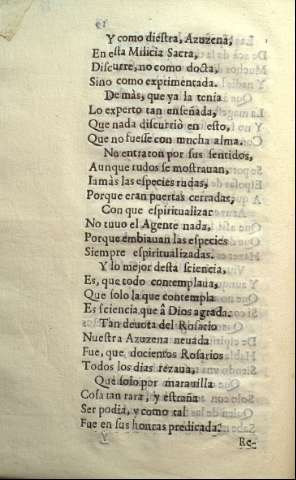 Y como diestra, Azuzena,
En esta Milicia Sacra,
Discurre, no como docta,
Sino como exprimentada.
De màs, que ya la tenia
Lo experto tan enseñada,
Que nada discurriò en esto,
Que no fuesse con mucha alma.
No entraron por sus sentidos,
Aunque rudos se mostrauan,
Iamàs las especies rudas,
Porque eran puertas cerradas,
Con que espiritualizar
No tuuo el Agente nada,
Porque embiauan las especies
Siempre espiritualizadas.
Y lo mejor desta sciencia,
Es, que todo contemplaua,
Que solo la que contempla
Es sciencia, que â Dios agrada.
Tan deuota del Rosario
Nuestra Azuzena neuada
Fue, que, docientos Rosarios
Todos los dias rezaua,
Que solo por marauilla
Cosa tan rara, y estraña
Ser podia, y como tal
Fue en sus honras predicada.
Re-